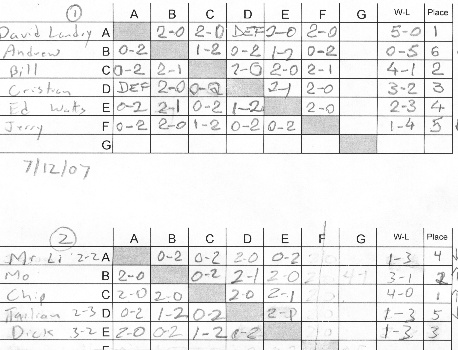 1 A B C D E F G W-L Place
David Landry A 2-0 2-0 DEF 2-0 2-0 5-0 1
Andrew B 0-2 1-2 0-2 1-2 0-2 0-5 6
Bill C 0-2 2-1 2-0 2-0 2-1 4-1 2
Cristian D DEF 2-0 0-2 2-1 2-0 3-2 3
Ed Watts E 0-2 2-1 0-2 1-2 2-0 2-3 4
Jerry F 0-2 2-0 1-2 0-2 0-2 1-4 5
G
7/12/07
2 A B C D E F G W-L Place
Mr. Li 2-2 A 0-2 0-2 2-0 0-2 1-3 4
Mo B 2-0 0-2 2-1 2-0 3-1 2
Chip C 2-0 2-0 2-0 2-1 4-0 1
2-3 D 0-2 1-2 0-2 2-0 1-3 5
Dick 3-2 E 2-0 0-2 1-2 0-2 1-3 3